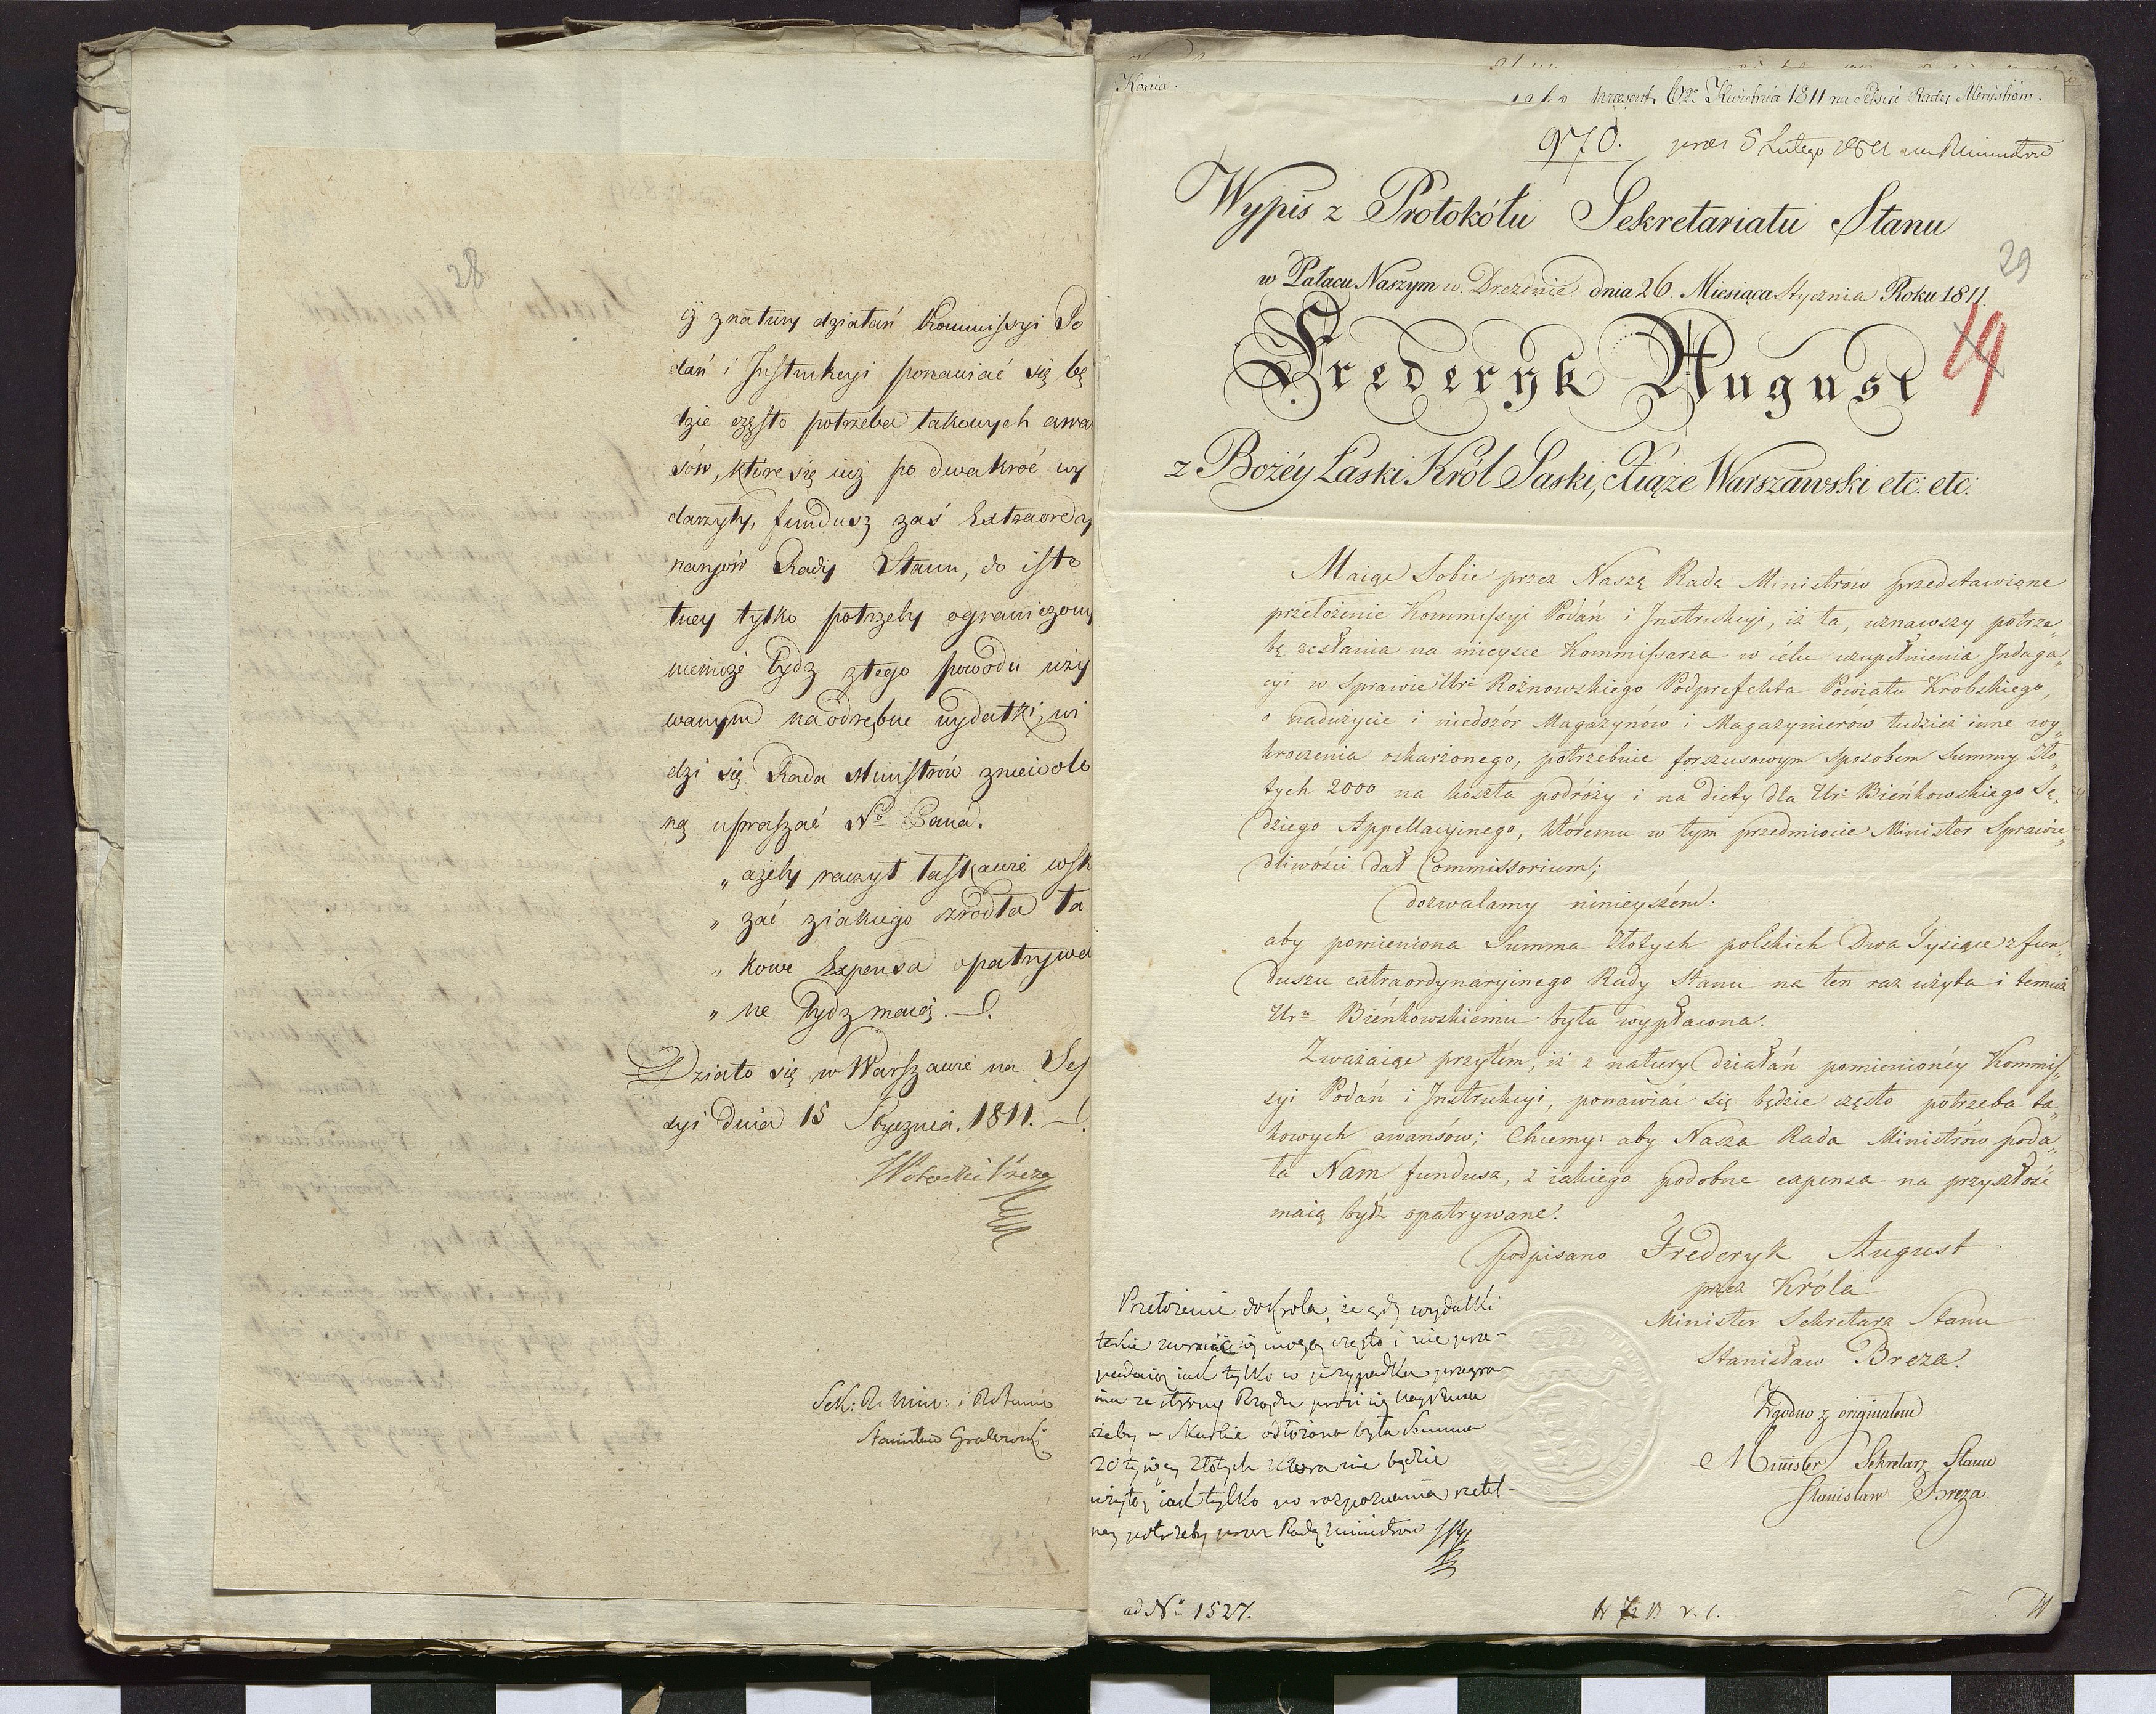 28
iż z natury działań Kommissyi Po
dań i Instrukcyi ponawiać się bę
dzie często potrzeba takowych awa
sów, które się iuż po dwakroć wy
darzyły, fundusz zaś Extraordy
naryów Rady Stanu, do isto
tney tylko potrzeby ograniczony
niemoże bydz z tego powodu uży
wanym na odrębne wydatki, wi
dzi się Rada Ministrów zniewolo
ną upraszać N° Pana.
„ ażeby raczył łaskawie wsk
„ zać z iakiego źrodła ta
„ kowe Expensa opatrywa
„ ne bydz maią.
Działo się w Warszawie na Ses
syi dnia 15 Stycznia. 1811.
Sek: R. Min: i
Stanisław Grabowski
Kopia.
6go Kwietnia 1811 na Sessyi Rady Ministrów.
970. prez 5 Lutego Ministrów
Wypis z Protokółu Sekretariatu Stanu
29
w Pałacu Naszym w. Dreznie. dnia 26. Miesiąca Stycznia Roku 1811.
19
Frederyk August
z Bożéy Łaski Król Saski, Xiąże Warszawski etc: etc:
Maiąc Sobie przez Naszą Radę Ministrów przedstawione
przełożenie Kommissyi Podań i Instrukcyi, iż ta, uznawszy potrze„
bę zesłania na mieysce Kommissarza w celu uzupełnienia Indaga„
cyi w Sprawie Ur: Rożnowskiego Podprefekta Powiatu Krobskiego,
o nadużycie i niedozór Magazynów i Magazynierów tudzież inne wy„
kroczenia oskarżonego, potrzebuie forszusowym sposobem Summy Zło„
tych 2000 na koszta podróży i na diety dla Ur: Bieńkowskiego Sę„
dziego Appellacyinego, któremu w tym przedmiocie Minister Sprawie„
dliwości dał Commissorium;
dozwalamy ninieyszém:
aby pomieniona Summa Złotych polskich Dwa Tysiące z fun„
duszu extraordynaryinego Rady Stanu na ten raz użyta i temuż
Ur: Bieńkowskiemu była wypłacona.
Zważaiąc przytém, iż z natury działań pomienionéy Kommis„
syi Podań i Instrukcyi, ponawiać się będzie często potrzeba ta„
kowych awansów; Chcemy: aby Nasza Rada Ministrów poda„
ła Nam fundusz, z iakiego podobne expensa na przyszłość
maią bydź opatrywane.
podpisano Frederyk August
przez Króla
Minister Sekretarz Stanu
Stanisław Breza.
Zgodno z originałem
Minister Sekretarz Stanu
Stanisław Breza
Przełożenie do Krola, że gdy wydatki
takie zwracać się mogą często i nie prze-
padaią iak tylko w przypadku przegra-
ney ze strony Rządu prosi się Nayłas
ażeby w Skarbie odłożona była Summa
20 tysięcy złotych ktora nie będzie
użytą iak tylko po rozpoznaniu rzetel-
ney potrzeby przez Radę ministrow
ad N° 1527.